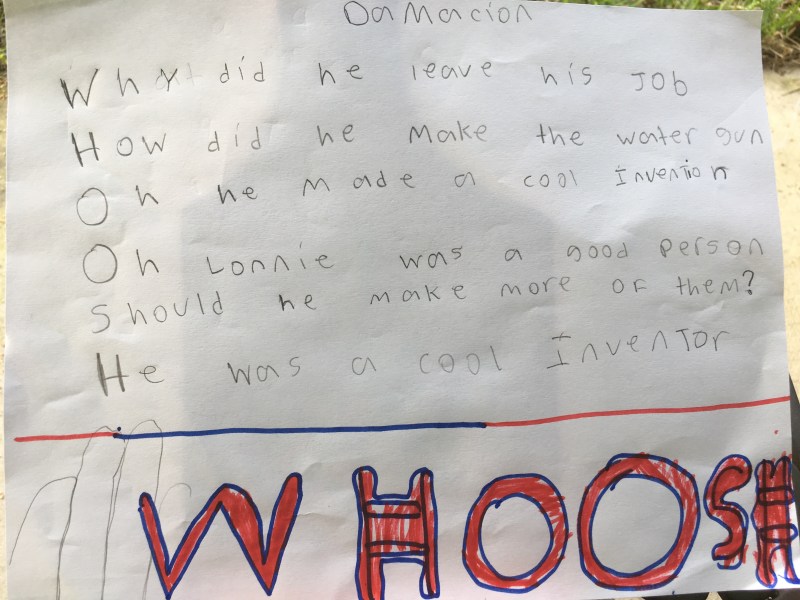 Damacion
Why did he leave his Job
How did he make the water gun
Oh he made a cool Invention
Oh Lonnie was a good person
Should he make more of them?
He was a cool Inventor
WHOOSH